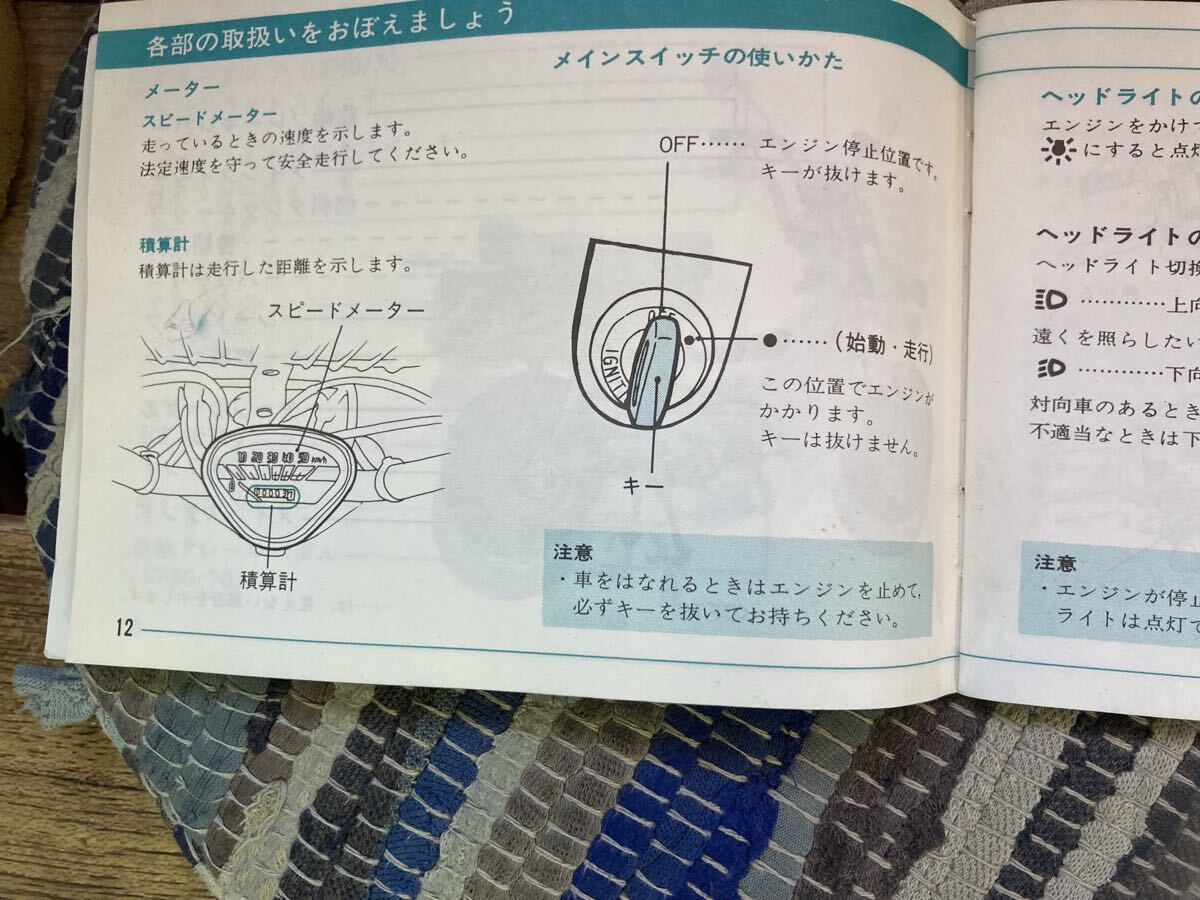 各部の取扱いをおぼえましょう
メーター
スピードメーター
走っているときの速度を示します。
法定速度を守って安全走行してください。
積算計
積算計は走行した距離を示します。
スピードメーター
10 20 30 40 50 km/h
0
積算計
12
メインスイッチの使いかた
OFF…… エンジン停止位置です。
キーが抜けます。
OFF
IGNIT
●……(始動・走行)
この位置でエンジンが
かかります。
キーは抜けません。
キー
注意
・車をはなれるときはエンジンを止めて,
必ずキーを抜いてお持ちください。
ヘッドライトの
エンジンをかけて
にすると点灯
ヘッドライトの
ヘッドライト切換
…………上向
遠くを照らしたい
…………下向
対向車のあるとき
不適当なときは下
注意
・エンジンが停止
ライトは点灯で